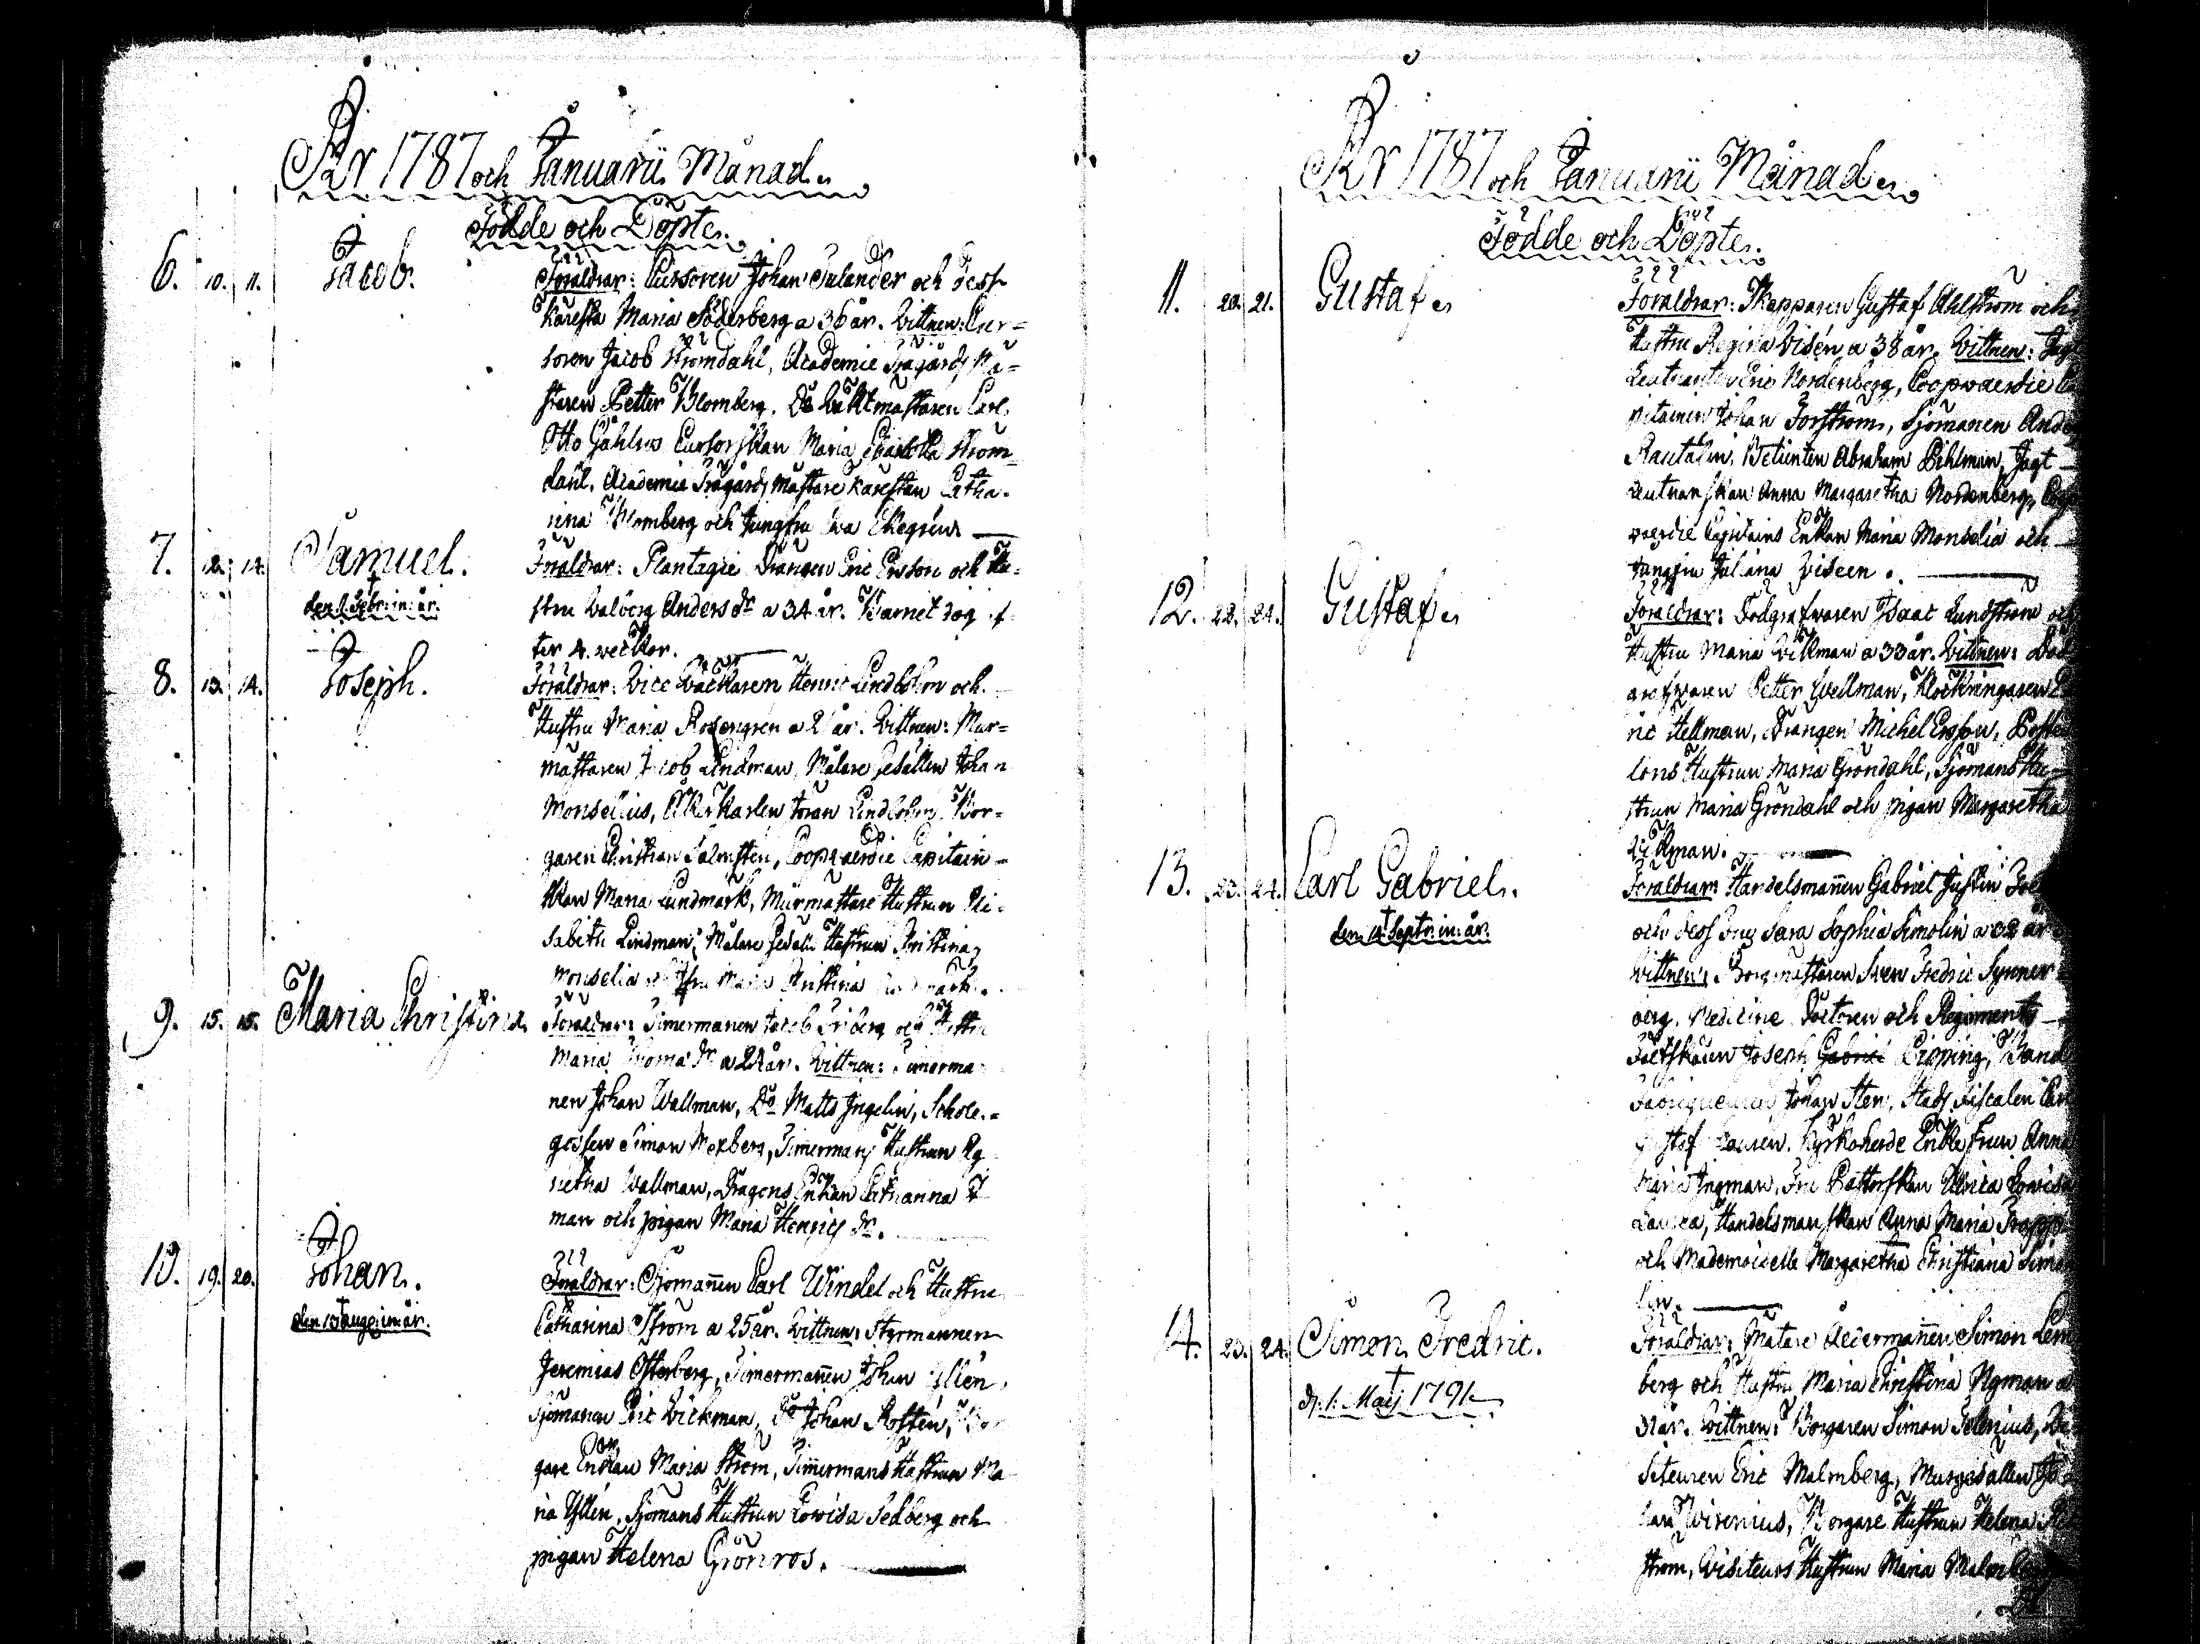 År 1787 och Januarii Månad.
Födde och Döpte.
6. 10. 11. Jacob. Föräldrar: Cursoren Johan Julander och dess
Käresta Maria Söderberg a 36 år. Vittnen: Cur=
soren Jacob Strömdahl, Academie Trägårds Mä=
staren Petter Blomberg. Do Vaktmästaren Carl
Otto Gåhlus Cursorskan Maria Charlotta Ström=
dahl, Academie Trägårds mästare Kärestan Catha-
rina Blomberg och Jungfru Eva Ekegren
7. 12. 14. Samuel. Föräldrar: Plantagie Drängen Eric Ersson och Hu=
den 1. Febr: in: år. stru Valborg Anders dr a 34 år. Barnet dog ef
ter 4. veckor.
8. 13. 14. Joseph. Föräldrar: Vice Väcktaren Henric Lindbohm och
Hustru Maria Rosengren a år. Vittnen: Mur=
mästaren Jacob Lindman, Målare Gesällen Johan
Monselius, Åkerkarlen Johan Lindbohm, Bor=
garen Christian Salmsten, Coopvaerdie Capitain-
skan Maria Lundmark, Murmästare Hustrun Eli-
sabeth Lindman, Målare Gesäll Hustrun Kristina
Monselia och Jfru Maria Kristina
9. 15. 15. Maria Christina Föräldrar: Timermanen Jacob Friberg och Hustru
Maria Thomæ dr a 24 år. Vittnen: Timerma
nen Johan Wallman, Do Matts Ingelin, Schole-
gossen Simon Mexberg, Timermans Hustrun Ag
netha Wallman, Dragons Enkan
man och pigan Maria Henrics dr.
10. 19. 20. Johan. Föräldrar: Sjömannen Carl Windel och Hustru
den 15 Aug: in: år. Catharina Ström a 25 år. Vittnen: Styrmannen
Jeremias Österberg, Timermannen Johan Yllén,
Sjömanen Eric Wickman, Do Johan Rostén, Bor
gare Enkan Maria Ström, Timmermans Hustrun Ma
ria Yllén, Sjömans Hustrun Lovisa Sedberg och
pigan Helena Grönros.
År 1787 och Januarii Månad.
Födde och Döpte.
11. 20. 21. Gustaf. Föräldrar: Skepparen Gustaf Ahlström och
Hustru Regina Visén a 38 år. Vittnen: Jagt
Leutnanten Eric Nordenberg, Coopvaerdie Ca
pitainen Johan Forström, Sjömanen Ande
Rautalin, Betjenten Abraham Pihlman, Jagt
Leutnanskan Anna Margaretha Nordenberg, Coop
vaerdie Capitains Enkan Maria Monselia och
Jungfru Juliana Viseen.
12. 22. 24. Gustaf. Föräldrar: Dödgrafvaren Isaac Lundström och
Hustru Maria Vikman a 33 år. Vittnen: Död
grafvaren Petter Wellman, Klockringaren E
ric Hellman, Drängen Michel Ersson, Postil
lons Hustrun Maria Gröndahl, Sjömans Hu=
strun Maria Gröndahl och pigan Margaretha
Vikman.
13. 23. 24. Carl Gabriel. Föräldrar: Handelsmannen Gabriel Justin
den 12 Septr: in: år. och dess Fru Sara Sophia Simolin a 32 år
Vittnen: Borgmästaren Sven Fredric Synner
berg, Medicine Doctoren och Regiments
Fältskären Joseph Gabriel Pipping, Band
Fabriqueuren Johan Sten, Stads Fiscalen Carl
Gustaf Kyrkoherde Enke Frun Anna
Maria Ingman, Fru Pastorskan Ulrica Lovisa
Handelsmanskan Anna Maria Trapp
och Mademoiselle Margaretha Christiana Simo
lin.
14. 23. 24. Simon Fredric. Föräldrar: Målare Åldermannen Simon Lem
d. 1. Maij 1791 berg och Hustru Maria Christina Nyman a
31 år. Vittnen: Borgaren Simon Selenius, Vi
siteuren Eric Malmberg, Murgesällen Jo
han Wirenius, Borgare Hustrun Helena
ström, Visiteurs Hustrun Maria Malmberg